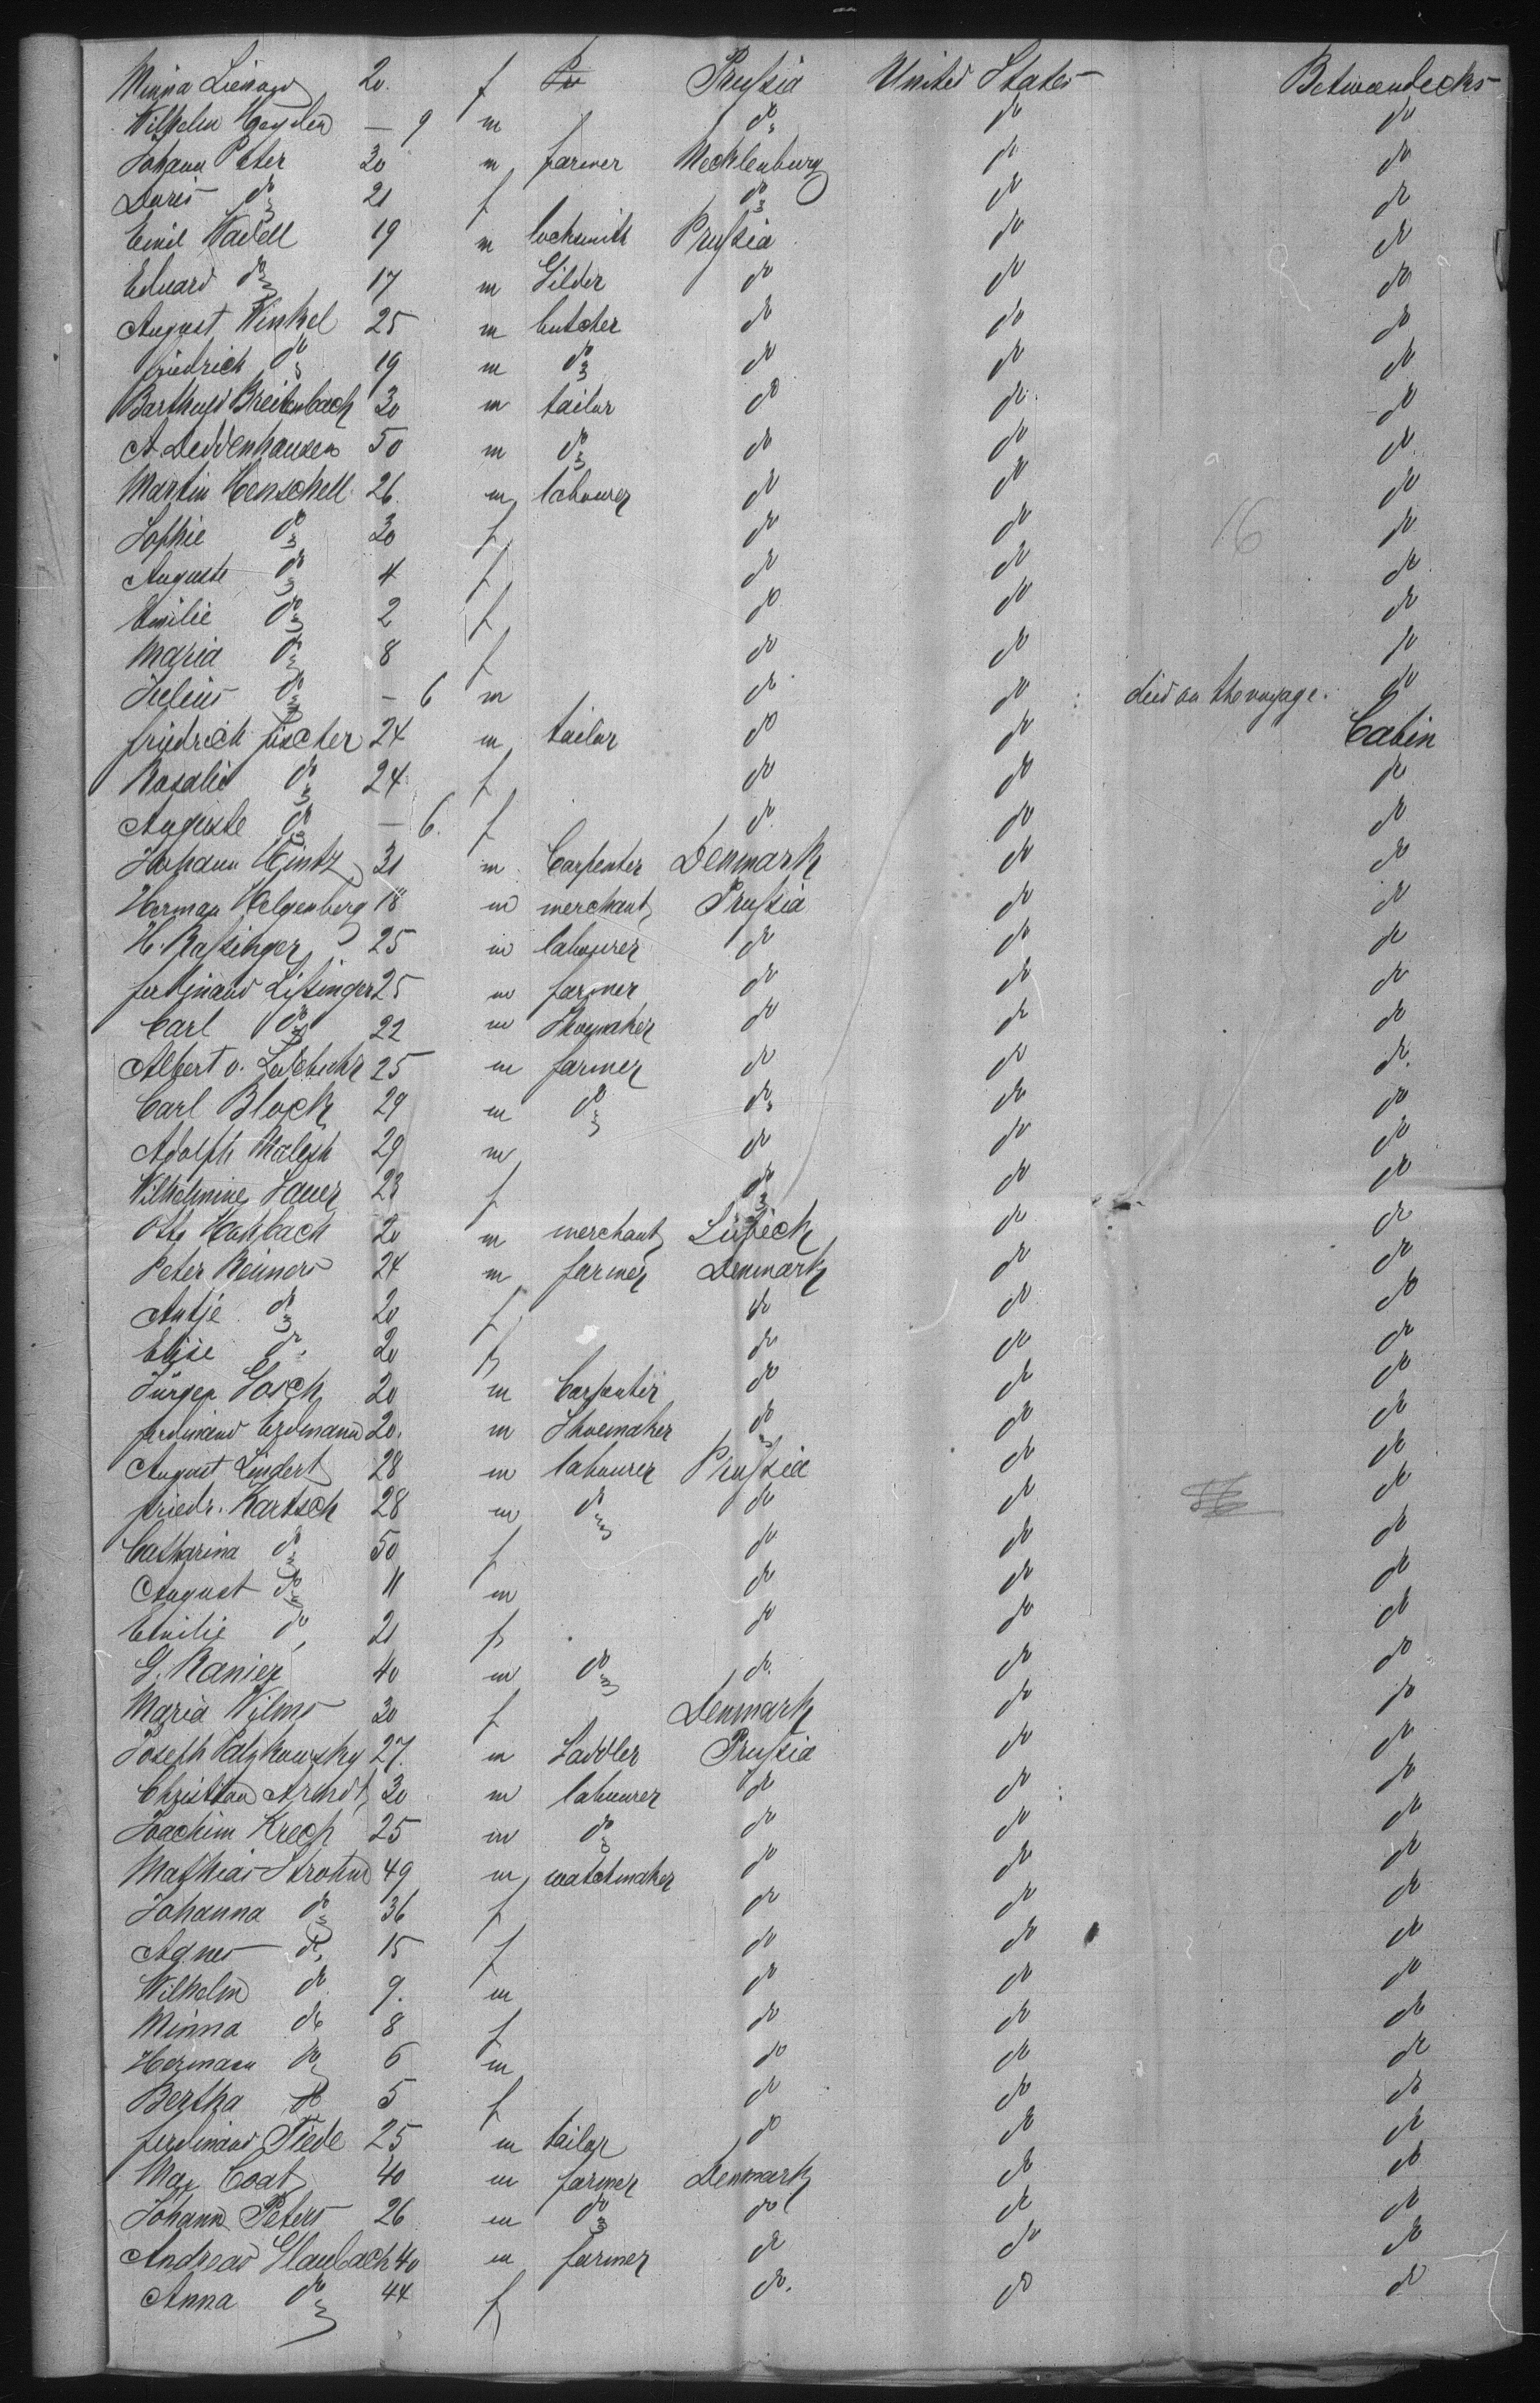 Minna Lienard 20. f Pru Prussia United States Betweendecks
Wilhelm Heyden — 9 m do do do
Johann Peter 30 m farmer Mecklenburg do do
Doris do 21 f do do do
Emil Wadell 19 m locksmith Prussia do do
Eduard do 17 m Gilder do do do
August Winkel 25 m butcher do do do
friedrich do 19 m do do do do
Barthold Breitenbach 30 m tailor do do do
A. Deddenhausen 50 m do do do do
Martin Henschell 26 m labourer do do do
Sophie do 30 f do do 16 do
Auguste do 4 f do do do
Emilie do 2 f do do do
Maria do 8 f do do do
Julius do — 6 m do do died on the voyage. do
friedrich fischer 24 m tailor do do Cabin
Rosalie do 24 f do do do
Auguste do — 6. f do do do
Johann Hintz 31 m Carpenter Denmark do do
Herman Helgenberg 18 m merchant Prussia do do
H. Rassinger 25 m labourer do do do
ferdinand Lissinger 25 m farmer do do do
Carl do 22 m Shoemaker do do do
Albert v. 25 m farmer do do do.
Carl Block 29 m do do do do
Adolph 29 m do do do
Wilhelmine Sauer 23 f do do do
Otto Hahbach 20 m merchant Lübeck do do
Peter Reimers 24 m farmer Denmark do do
Antje do 20 f do do do
Elise do 20 f do do do
Jürgen Gosch 20 m Carpenter do do do
ferdinand Erdmann 20. m Shoemaker do do do
August Lindert 28 m labourer Prussia do do
friedr. Kartsch 28 m do do do do
Catharina do 50 f do do do
August do 11 m do do do
Emilie do 21 f do do do
G. Ranier 40 m do do. do do
Maria Wilms 30 f Denmark do do
Joseph 27. m Saddler Prussia do do
Christian Arndt 30 m labourer do do do
Joachim Krech 25 m do do do do
Mathias Strohm 49 m watchmaker do do do
Johanna do 36 f do do do
Agnes do 15 f do do do
Wilhelm do 9. m do do do
Minna do 8 f do do do
Hermann do 6 m do do do
Bertha do 5 f do do do
ferdinand Tiede 25 m tailor do do do
Max Coat 40 m farmer Denmark do do
Johann Peters 26 m do do do do
Andreas Glaubach 40 m farmer do do do
Anna do 44 f do. do do